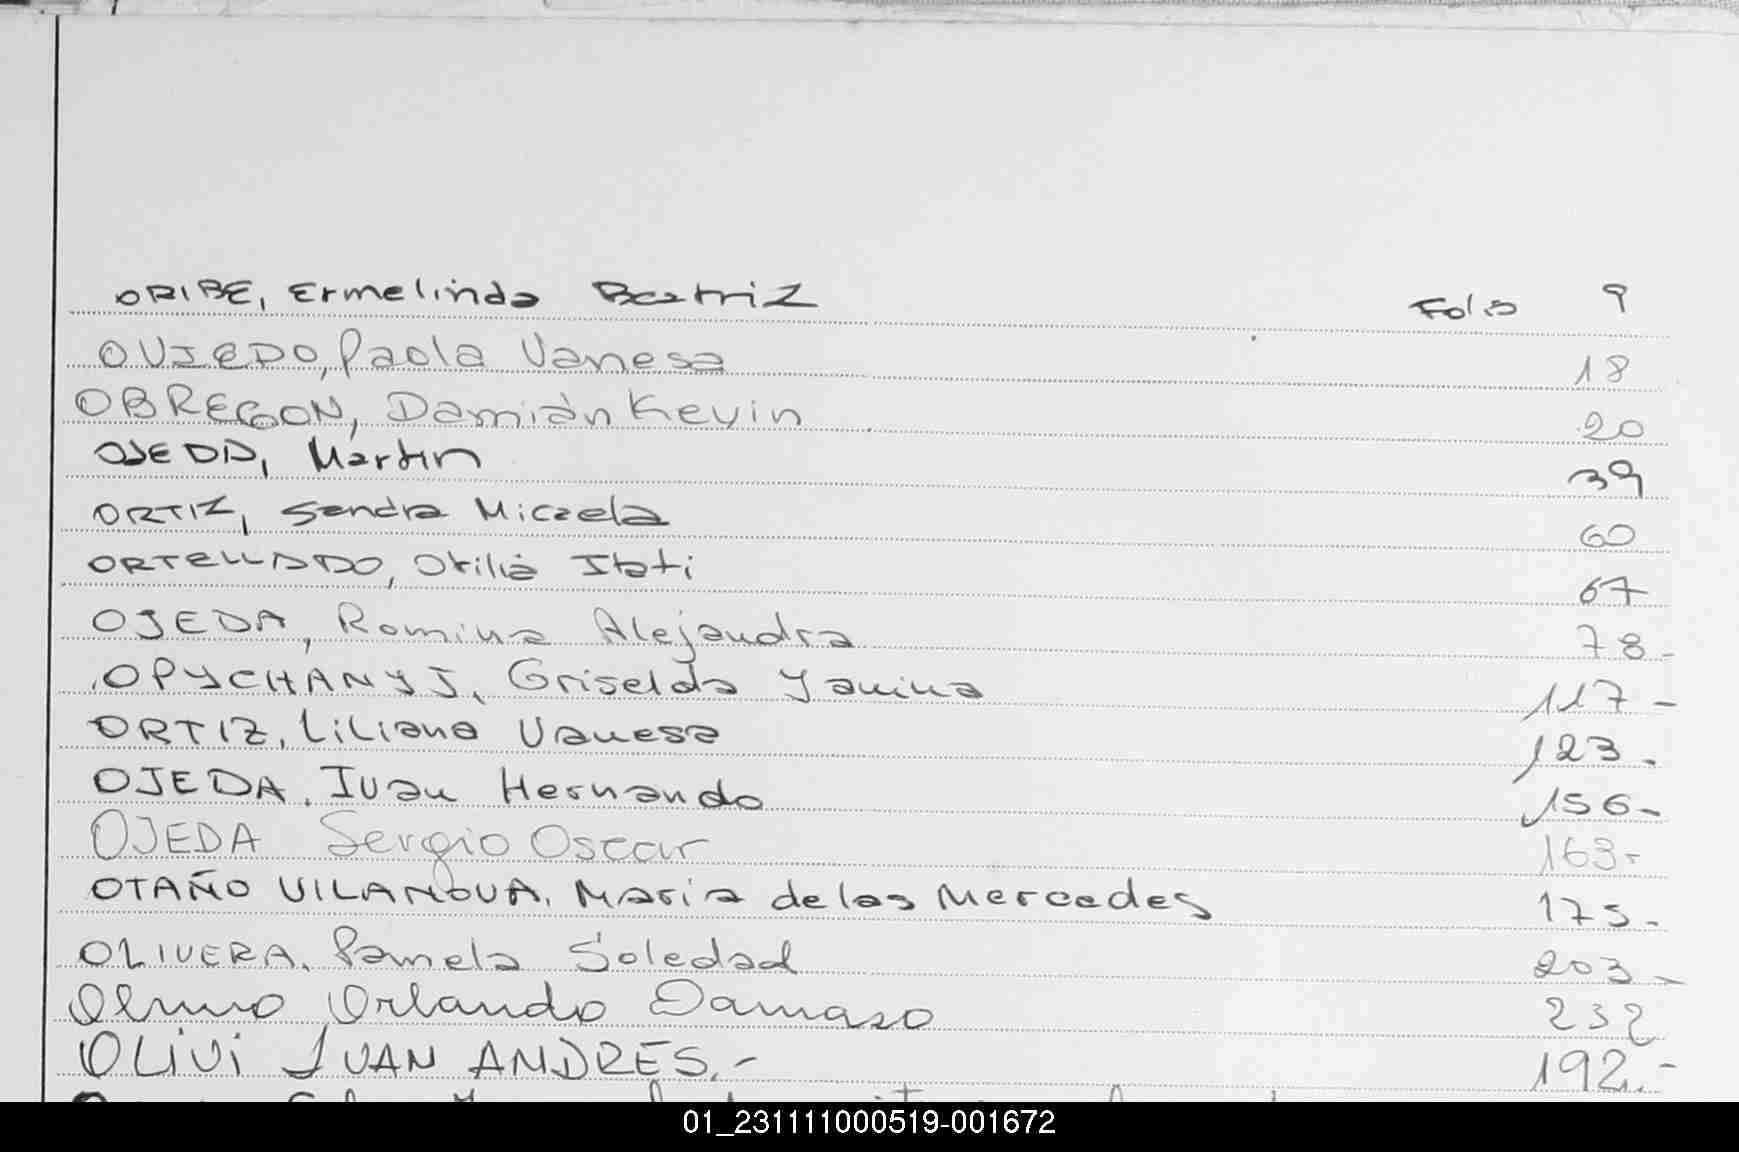 ORIBE, Ermelinda Beatriz Folio 9
OVIEDO, Paola Vanesa 18
OBREGON, Damián Kevin 20
OJEDA, Martin 39
ORTIZ, Sandra Micaela 60
ORTELLADO, Otilia Itati 67
OJEDA, Romina Alejandra 78-
OPYCHANYJ, Griselda Yanina 117-
ORTIZ, Liliana Vanesa 123.
OJEDA, Ivan Hernando 156-
OJEDA Sergio Oscar 163-
OTAÑO VILANOVA, Maria de las Mercedes 175-
OLIVERA, Pamela Soledad 203-
Olmo Orlando Damaso 232
OLIVI JUAN ANDRES.- 192.-
01_231111000519-001672